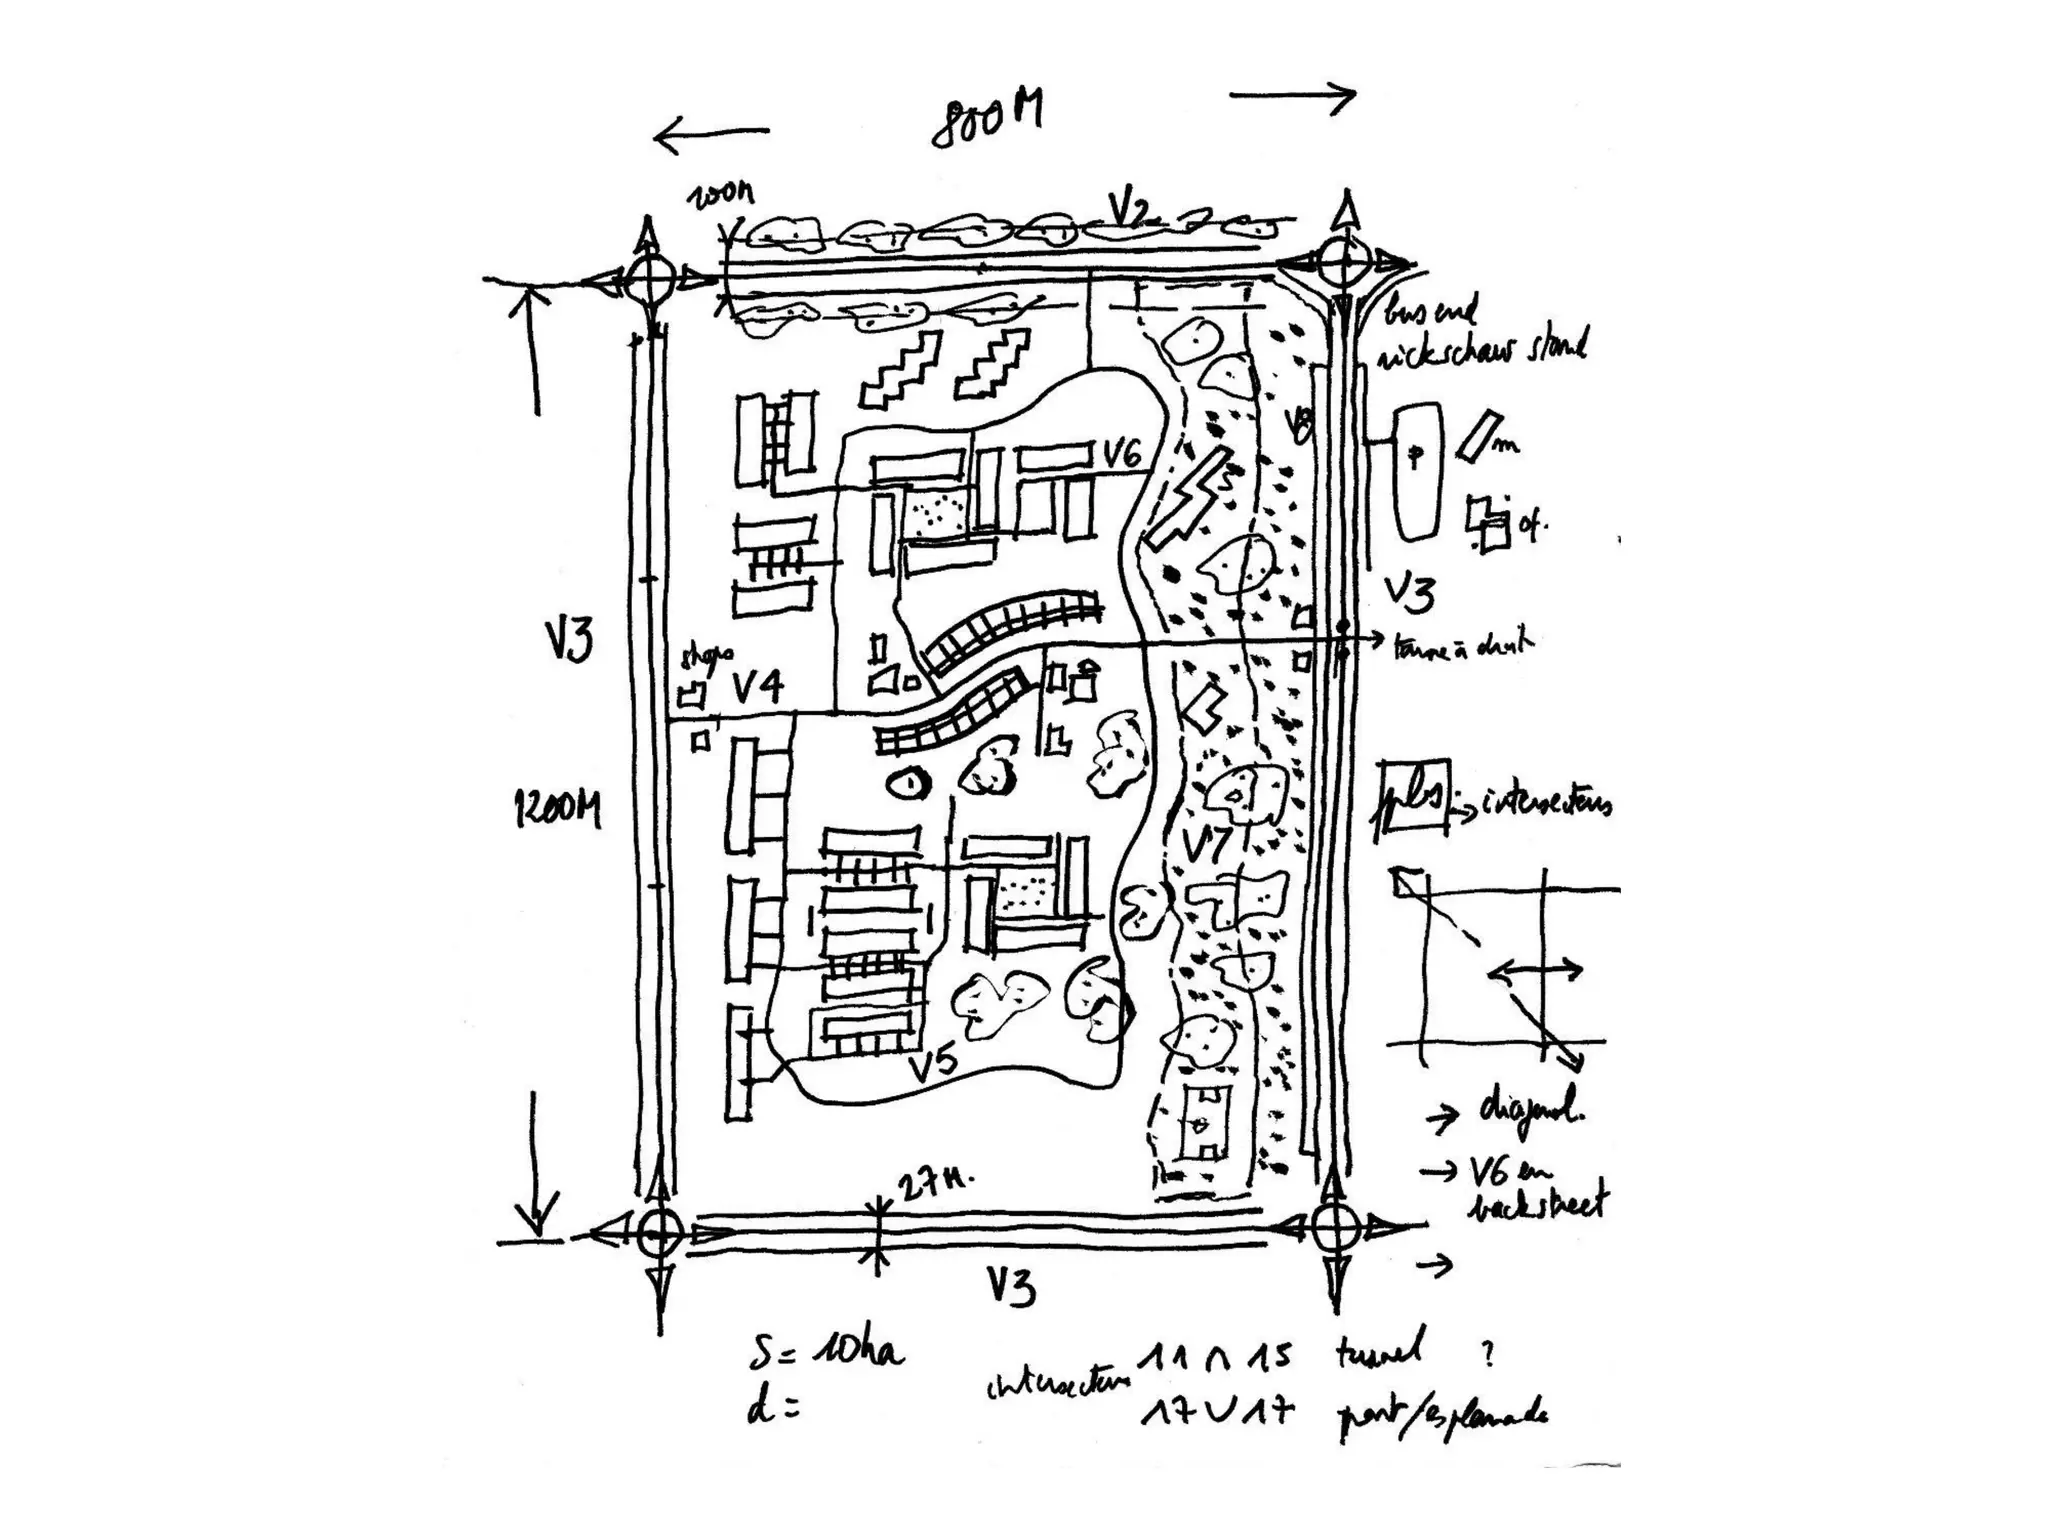 800M
100M
V2
bus and
rickschaw stand
V8
V6
P
m
of.
V3
V3
shops
V4
tourne à droit
1200M
pbs. → intersecteurs
V7
V5
→ diagonal.
27M.
→ V6 en
backstreet
→
V3
S = 10ha
d =
intersecteurs 11 ∩ 15 tunnel ?
17 ∪ 17 pont/esplanade